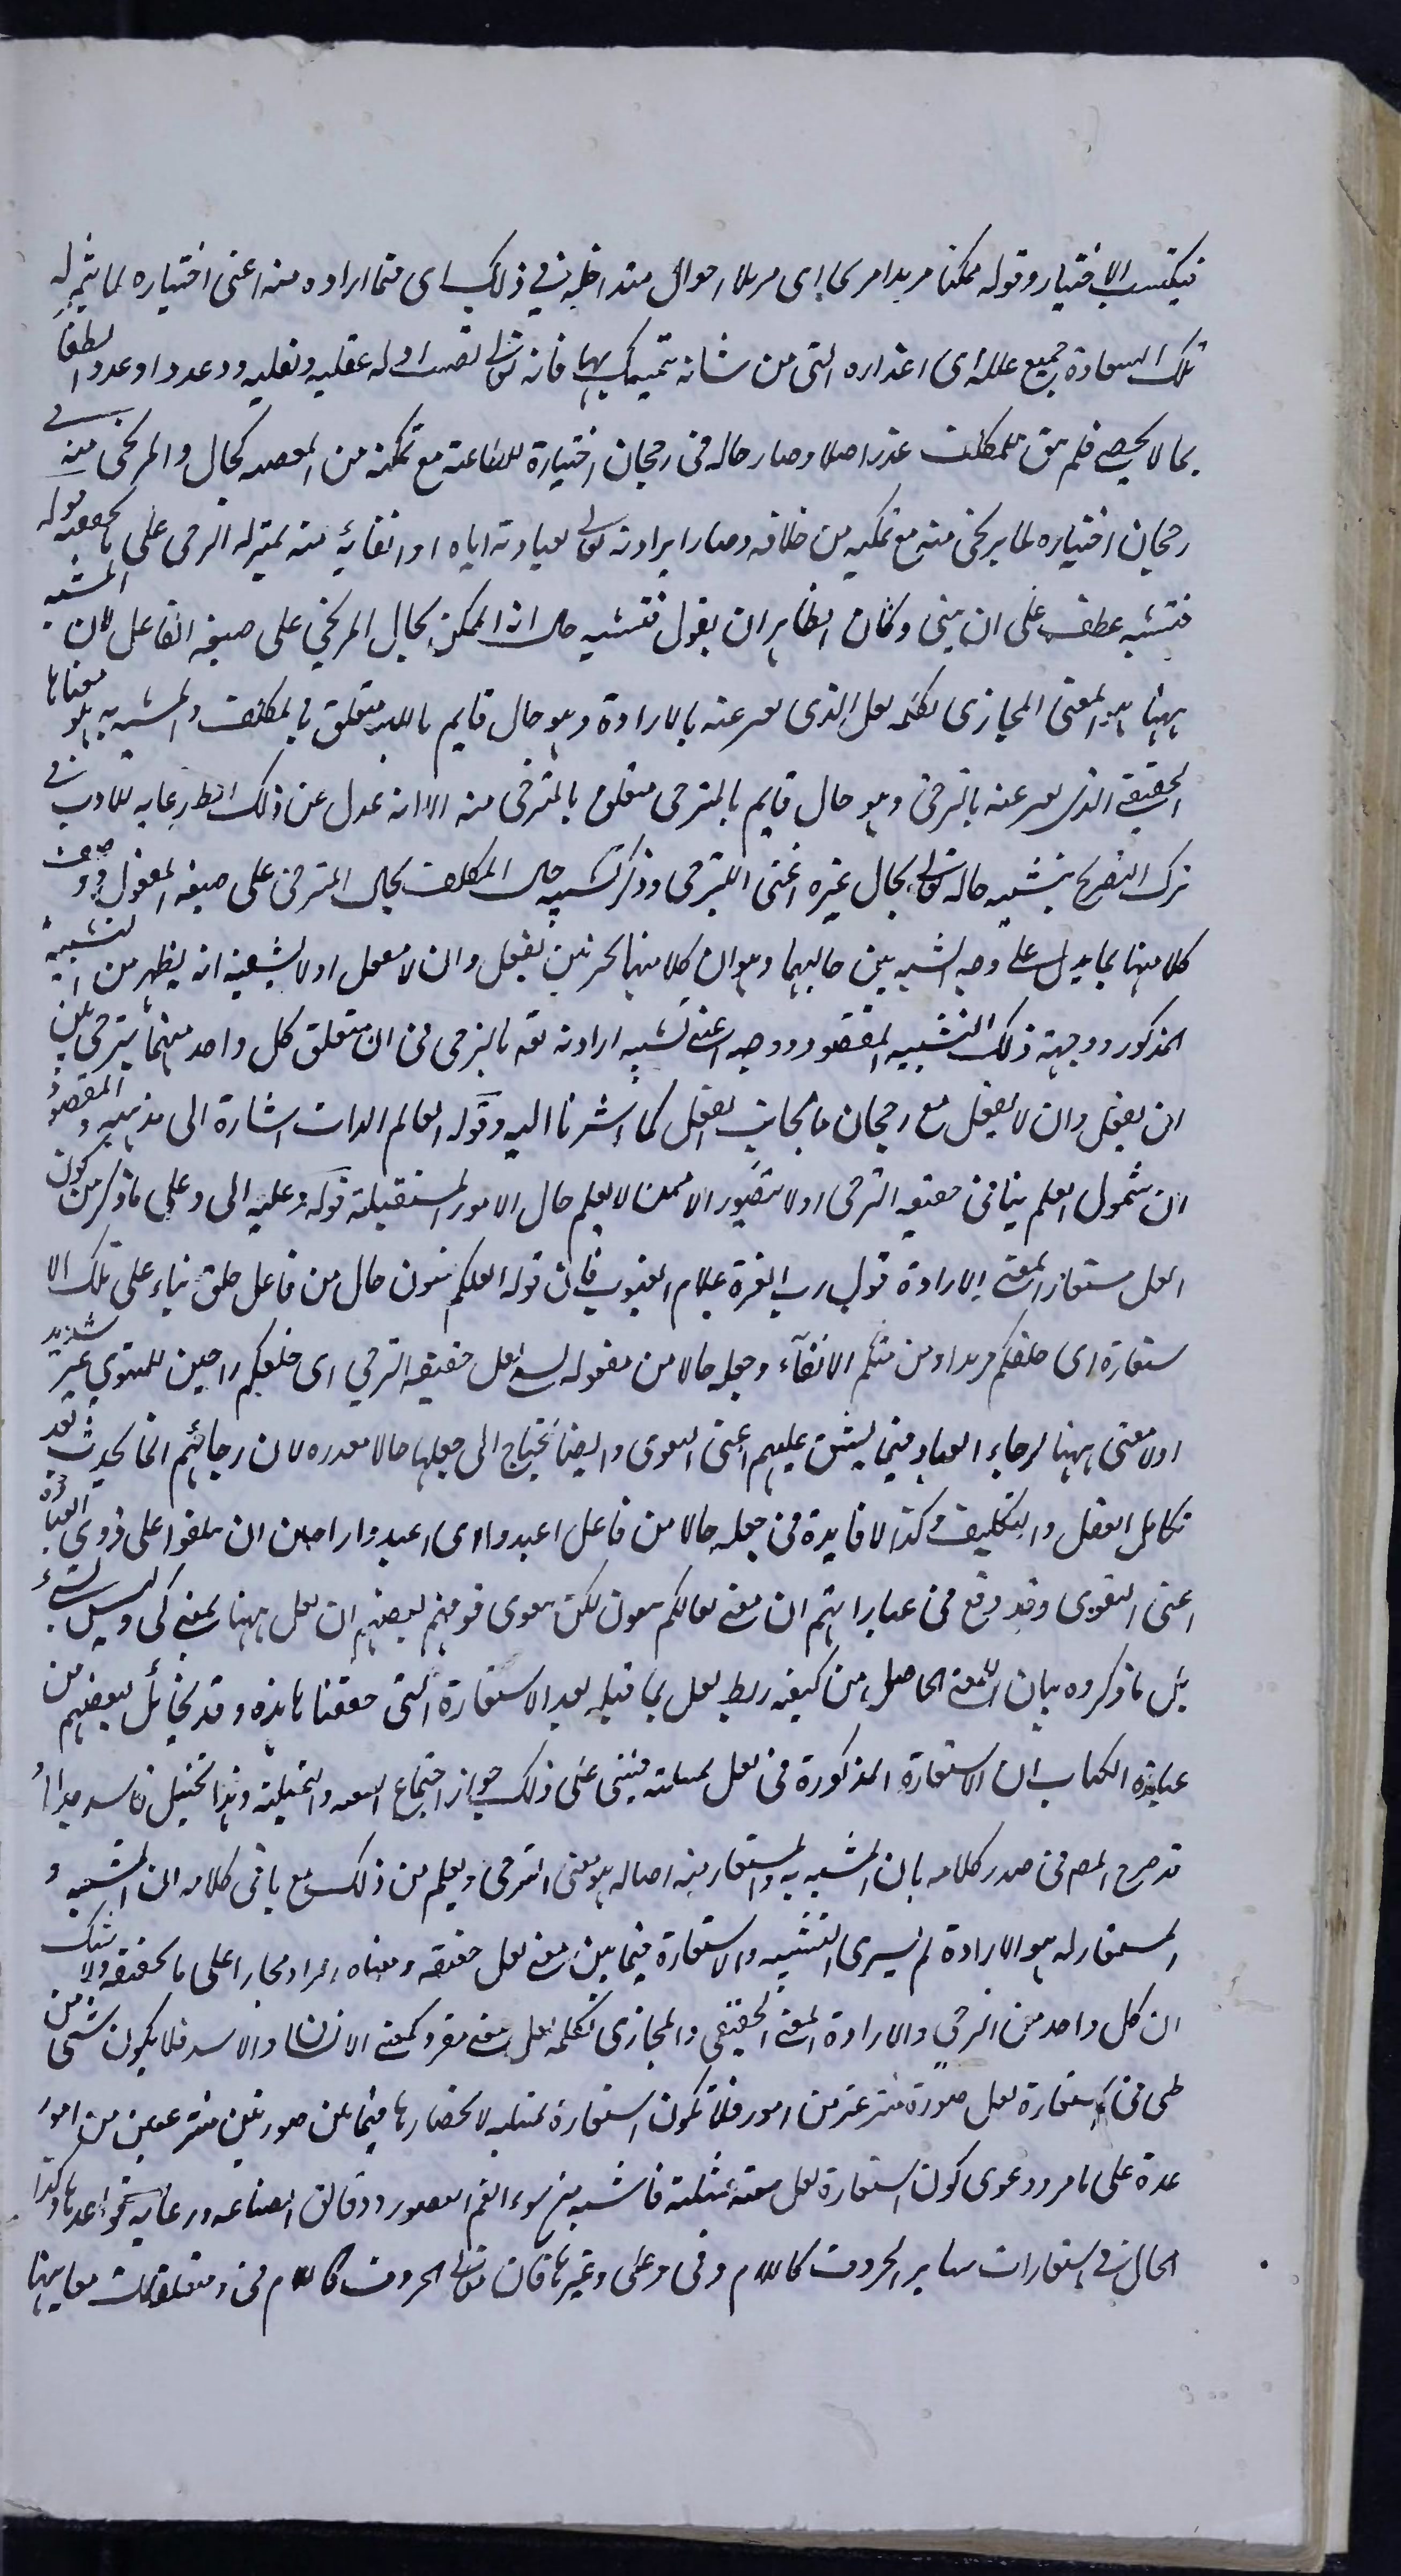 فيكتسب الاختيار وقوله ممكنا مريدا مريحا اى مزيلا احوال متداخلة فى ذلك اى مما اراده منه اعنى اختياره لما يثمر له
تلك السعادة جميع علله اى اعذاره التى من شانه تمسك بها فانه تعالى نصب ادلة عقلية ونقلية ووعد واوعد والطف
بما لا يحصى فلم يبق للمكلف عذر اصلا وصار حاله فى رجحان اختياره للطاعة مع تمكنه من المعصية كحال المرتجى منه فى
رجحان اختياره لما يرتجى منه مع تمكنه من خلافه وصار ارادته تعالى لعبادته اياه او اتقائه منه بمنزلة الترجى على ما حققه قوله
فتشبه عطف على ان يبنى وكان الظاهر ان يقول فتشبه حال الممكن بحال المرتجى على صيغة الفاعل لان المشبه
ههنا هو المعنى المجازى لكلمة لعل الذى يعبر عنه بالارادة وهو حال قايم بالله متعلق بالمكلف والمشبه به هو معناها
الحقيقى الذى يعبر عنه بالترجى وهو حال قايم بالمترجى متعلق بالمترجى منه الا انه عدل عن ذلك الظ رعاية للادب فى
ترك التصريح بتشبيه حاله تعالى بحال غيره اعنى المترجى وذكر تشبيه حال المكلف بحال المترجى على صيغة المفعول ووصف
كلا منهما بما يدل على وجه الشبه بين حاليهما وهو ان كلا منهما تخير بين ان يفعل وان لا يفعل او لا يشتبه انه يظهر من التشبيه
المذكور ووجهه ذلك التشبيه المقصود ووجهه اعنى تشبيه ارادته تعه بالترجى فى ان متعلق كل واحد منهما يترجى بين
ان يفعل وان لا يفعل مع رجحان ما بجانب الفعل كما اشرنا اليه وقوله العالم الذات اشارة الى مذهبه والمقصود
ان شمول العلم ينافى حقيقة الترجى اذ لا يتصور الا ممن لا يعلم حال الامور المستقبلة قوله وعليه الى وعلى ما ذكر من كون
لعل مستعارا لمعنى الارادة قول رب العزة علام الغيوب فان قوله لعلكم تتقون حال من فاعل خلق بناء على تلك الا
ستعارة اى خلقكم مريدا منكم الاتقاء وجعله حالا من مفعوله لعل حقيقة الترجى اى خلقكم راجين للتقوى غير سديد
اذ لا معنى ههنا لرجاء العباد فيما يشق عليهم اعنى التقوى وايضا يحتاج الى جعلها حالا مقدرة لان رجائهم انما يحدث بعد
تكامل العقل والتكليف وكذا لا فايدة فى جعله حالا من فاعل اعبدوا اى اعبدوا راجين ان يبلغوا على ذروة العبادة
اعنى التقوى وقد وقع فى عباراتهم ان معنى لعلكم تتقون لكى تتقوى فتوهم بعضهم ان لعل ههنا بمعنى كى وليس بشئ
بل ما ذكروه بيان للمعنى الحاصل من كيفية ربط لعل بما قبله بعد الاستعارة التى حققناها هذه وقد تخايل بعضهم من
عبارة الكتاب ان الاستعارة المذكورة فى لعل تمثيلية فبنى على ذلك جواز اجتماع التبعية والتمثيلية وهذا تخيل فاسد جدا
قد صرح المص فى صدر كلامه بان المشبه به والمستعار منه اصالة هو معنى الترجى ويعلم من ذلك مع باقى كلامه ان المشبه و
المستعار له هو الارادة لم يسرى التشبيه والاستعارة فيما بين معنى لعل حقيقة ومعناه المراد مجازا على ما حققه ولا شك
ان كل واحد من الترجى والارادة المعنى الحقيقى والمجازى لكلمة لعل معنى مفرد كمعنى الانسان والاسد فلا يكون شئ من
طرفى استعارة لعل صورة منتزعة من امور فلا تكون استعارة تمثيلية لانحصارها فيما بين صورتين منتزعتين من امور
عدة على ما مر ودعوى كون استعارة لعل معينة تمثيلية فاشية من سوء الفهم لصور ودقائق الصناعة ورعاية قواعدها وكذا
الحال فى استعارات سائر الحروف كاللام وفى وعلى وغيرها فان معانى الحروف كاللام فى ومتعلقات معانيها